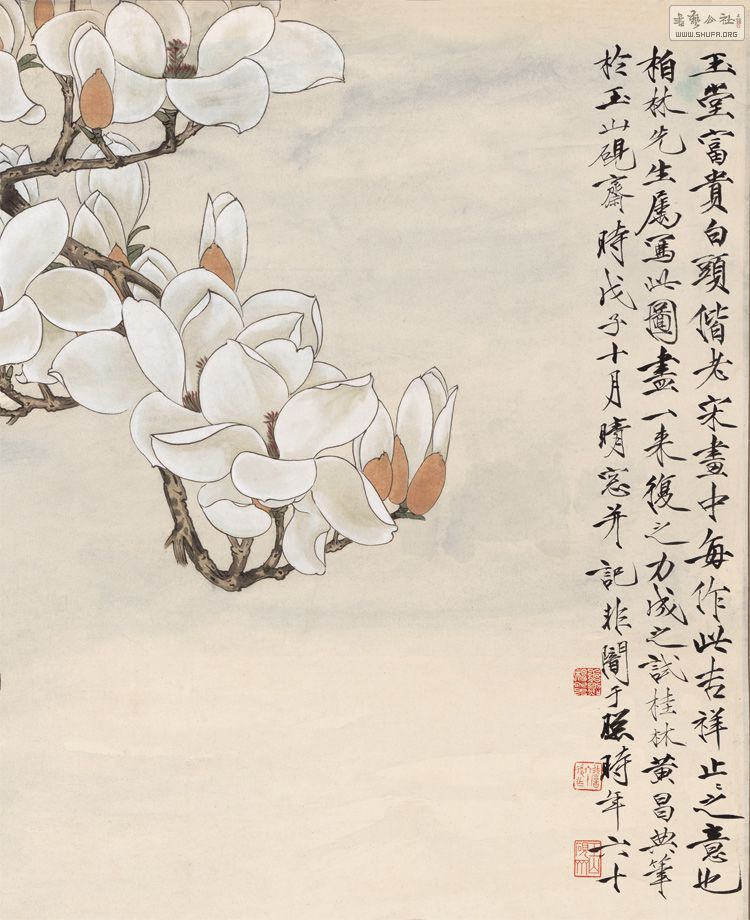 玉堂富貴白頭偕老宋畫中每作此吉祥止〻之意也
柏林先生屬寫此圖盡一来復之力成之試桂林黄昌典筆
於玉山硯齋時戊子十月晴窓并記非闇于照時年六十
書藝公社
WWW.SHUFA.ORG